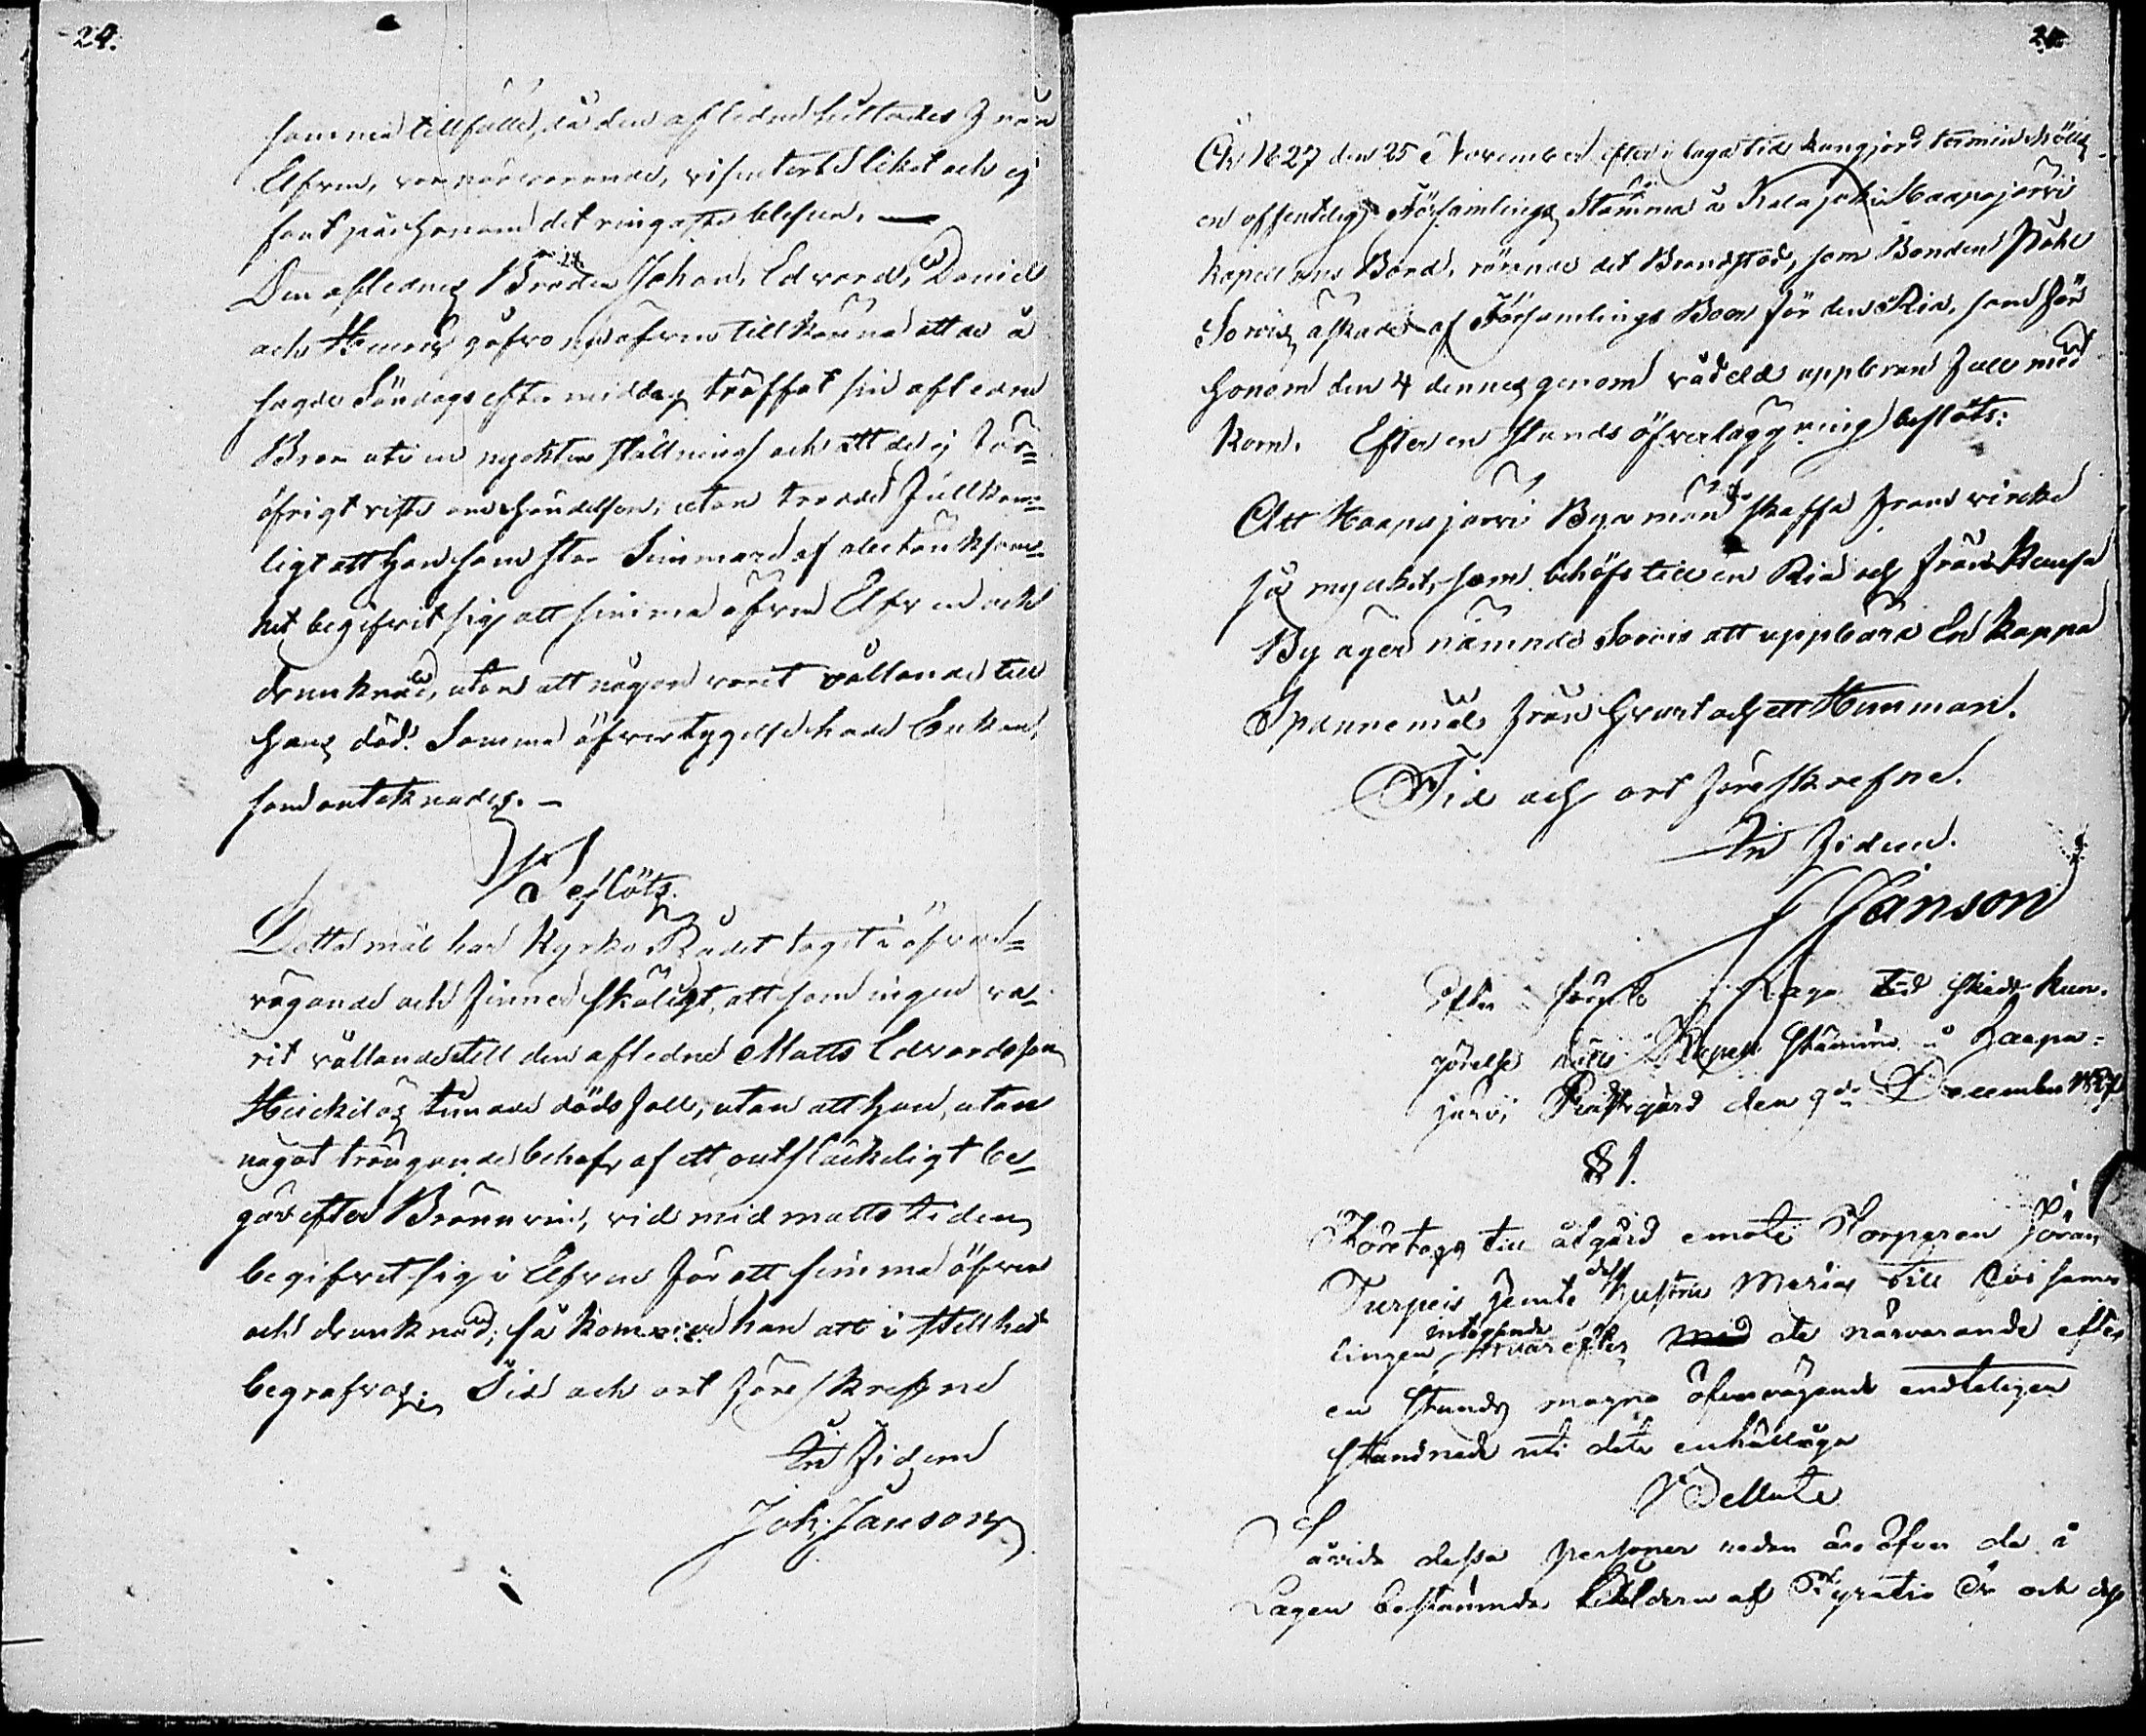 24.
samma tillfälle, då den afledne hittades från
Elfven, var närvarande, visenterte liket och ej
fant på honom det ringaste blessur. —
Den aflednes Bröder Johan, Edvard, Daniel
och Henric gåfvo äfven tillkänna att de å
sagde Söndags eftermiddag träffat sin aflednе
Bror uti en nykter ställning och att de ej för=
öfrigt viste om händelsen, utan trodde fullkom=
ligt att han som stor Simmare af obetänksam=
het begifvit sig att simma öfver Elfven och
drunknad, utan att någon varit vållande till
hans död. Samma öfvertygelse hade Enkan,
som antecknades. —
Beslöts
Detta mål har Kyrko Rådet tagit i öfver=
vägande och finner skäligt, att som ingen va=
rit vållande till den aflednе Matts Edvardsson
Heickilas timade dödsfall, utan att han, utan
något trängande behof, af ett outsläckeligt be=
gär efter Brännvin, vid midnatts tiden
begifvit sig i Elfven för att simma öfver
och drunknad; så kommer han att i stillhet
begrafvas. Tid och ort föreskrefne
In fidem
Joh: Janson
År 1827 den 25 November efter i laga tid kungjord termin hölls
en offentelig Församlings Stämma å Kalajoki Haapajärvi
Kapellans Bord, rörande det Brandstod, som Bonden Påhl
Sorvis äskade af Församlings Boer för den Ria, som för
honom den 4 dennes genom våd eld uppbrann full med
Korn. Efter en stunds öfverläggning beslöts:
Att Haapajärvi Byamän skaffa fram virke
så mycket, som behöfs till en Ria och från
By äger nämnde Sorvis att uppbära En Kappa
Spannemål från hvart och ett Hemman.
Tid och ort föreskrefne.
In fidem.
J Janson
Efter Laga tid skedd kun=
görelse hölls stämma å Haapa=
järvi Prästegård den 9de December 1827
§ 1.
Företogs till åtgärd emot Torparen Göran
Turpeis jemte dess hustru Maria till
lingen intagande hvarefter med de närvarande efter
en stunds moget öfvervägande endteligen
stannade uti dete enhälliga
Beslut
Såvida dessa personer redan äro öfver de i
Lagen bestämda åldern af Fyratio år och dess